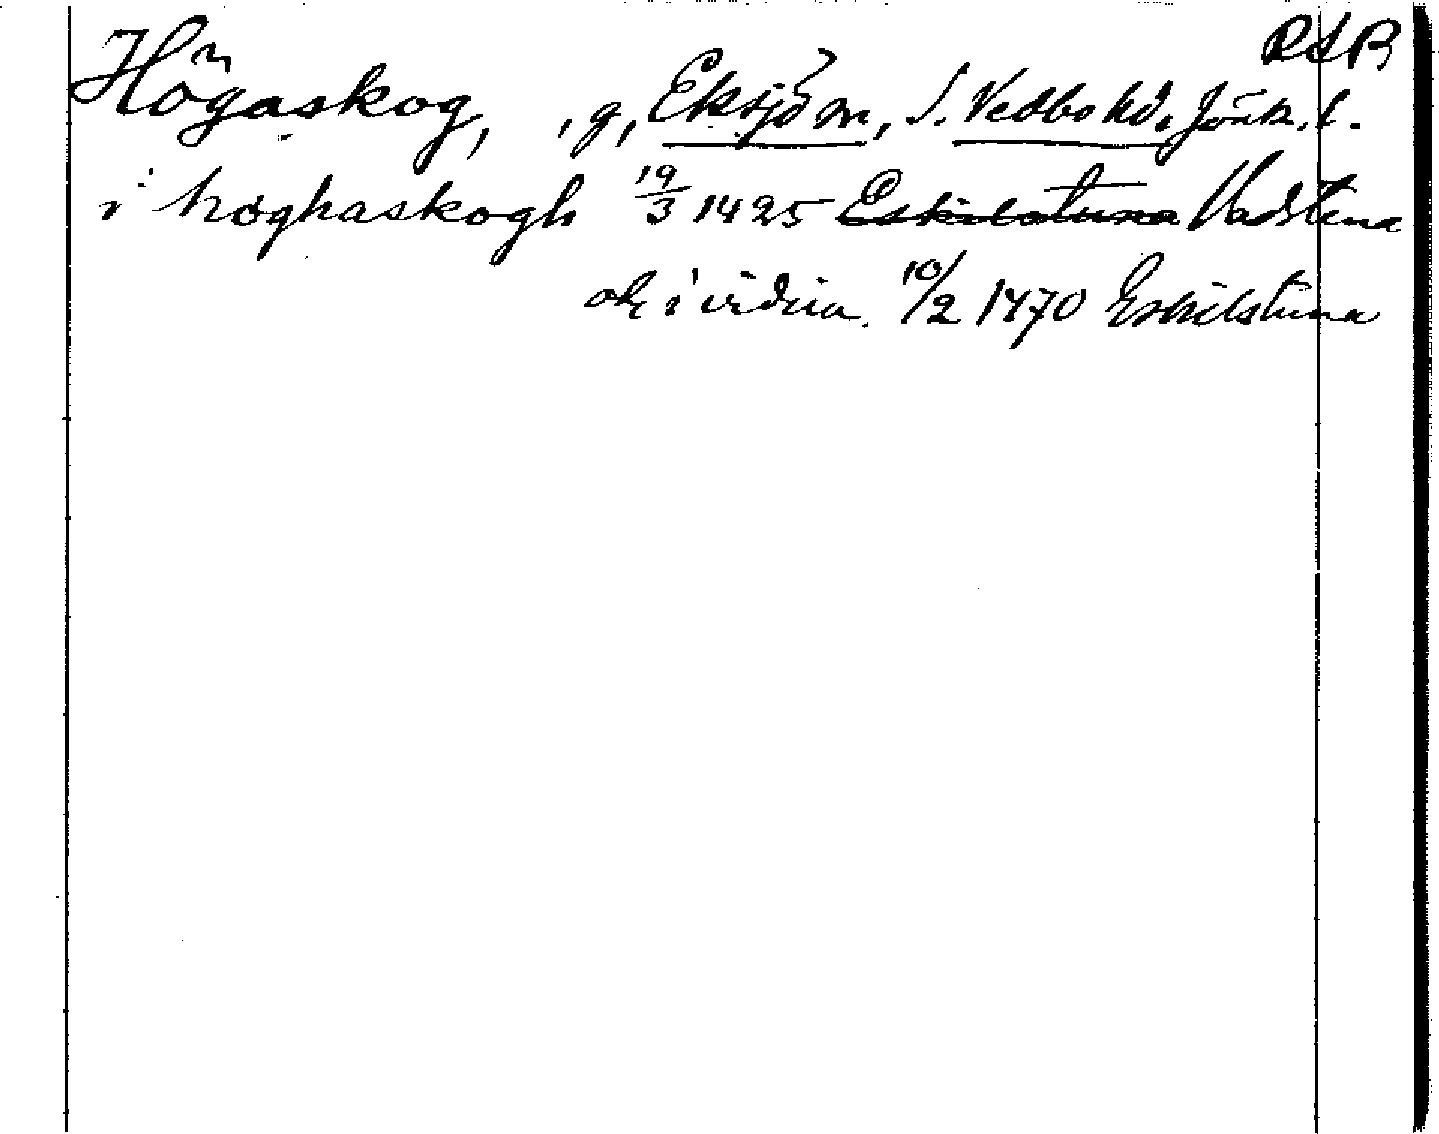 RSB
Högaskog, , g, Eksjö sn, S. Vedbo hd. Jönk. l.
i høghaskogh 19/3 1425 Eskilstuna Vadstena
ok i vidim. 10/2 1470 Eskilstuna